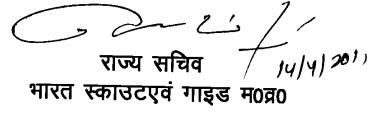 राज्य सचिव 14/4/2011
भारत स्काउटएवं गाइड म0व्र0